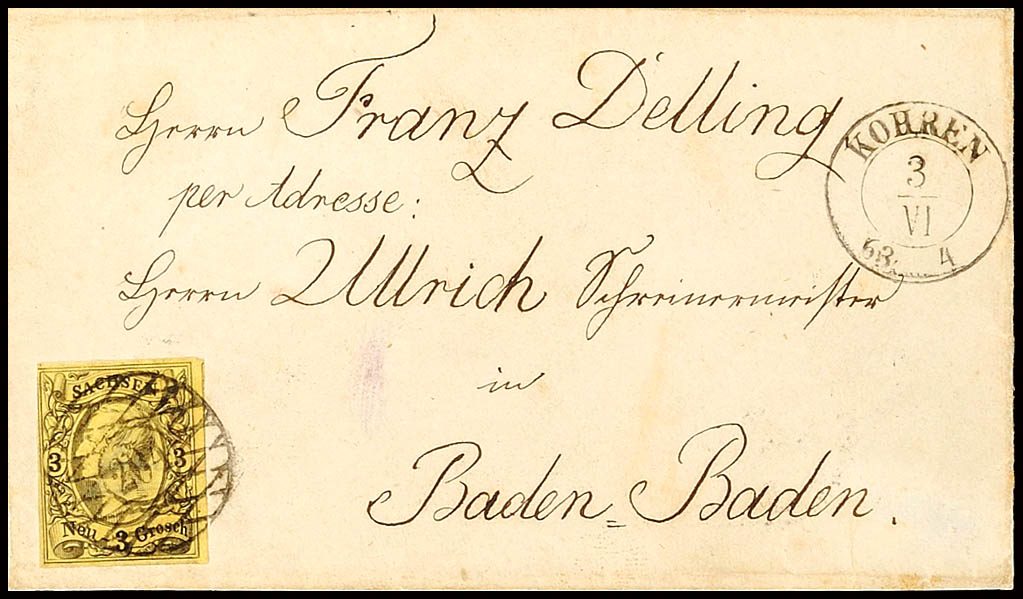 Herrn Franz Delling
per Adresse:
Herrn Ullrich Schreinermeister
in
Baden=Baden.
KOHREN
3
VI
63. 4
SACHSEN
3 3
Neu 3 Grosch